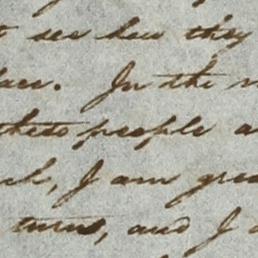 see how they
In the
these people a
I am grea
turns, and I